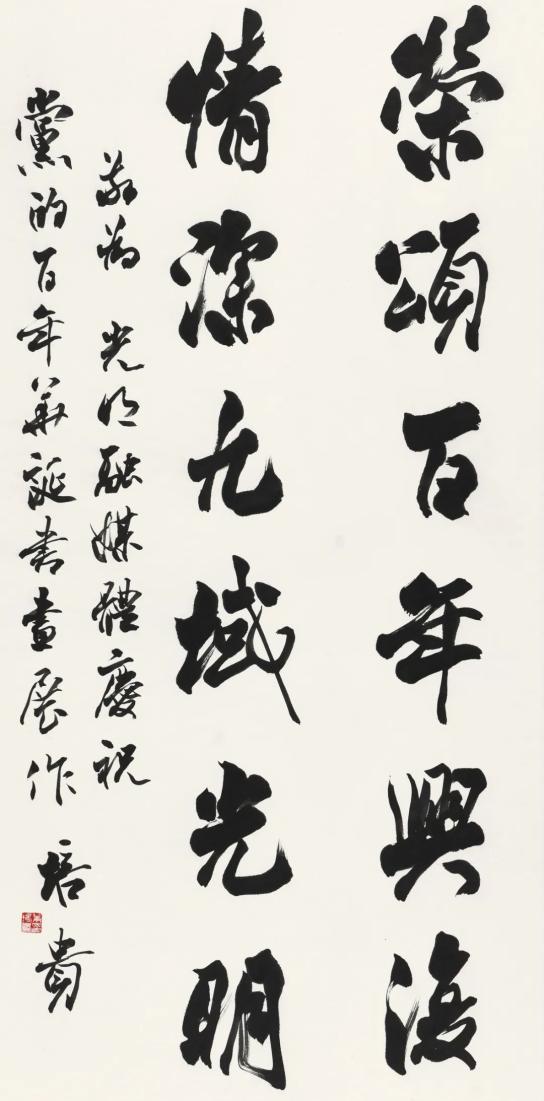 榮頌百年興復
情深九域光明
敬為 光明融媒體慶祝
黨的百年華誕書畫展作 培貴